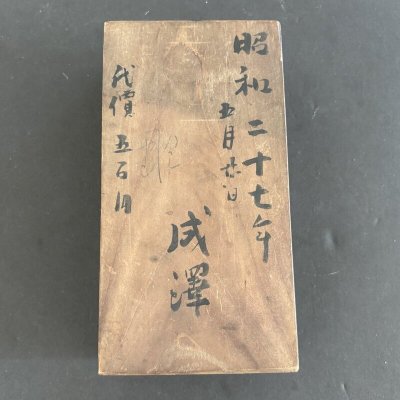 昭和二十七年
五月廿日
成澤
代價五百円